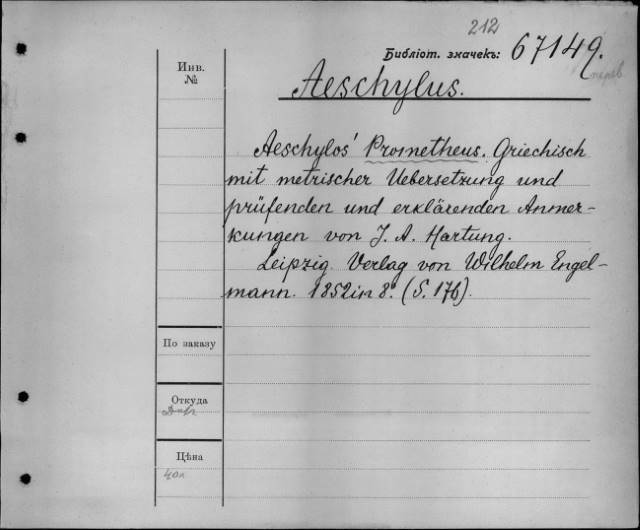 212
Библіот. значекъ: 67149.
Инв.
№
Aeschylus.
Aeschylos' Prometheus. Griechisch
mit metrischer Uebersetzung und
prüfenden und erklärenden Anmer-
kungen von J. A. Hartung.
Leipzig. Verlag von Wilhelm Engel-
mann. 1852 in 8°. (S. 176).
По заказу
Откуда
Цѣна